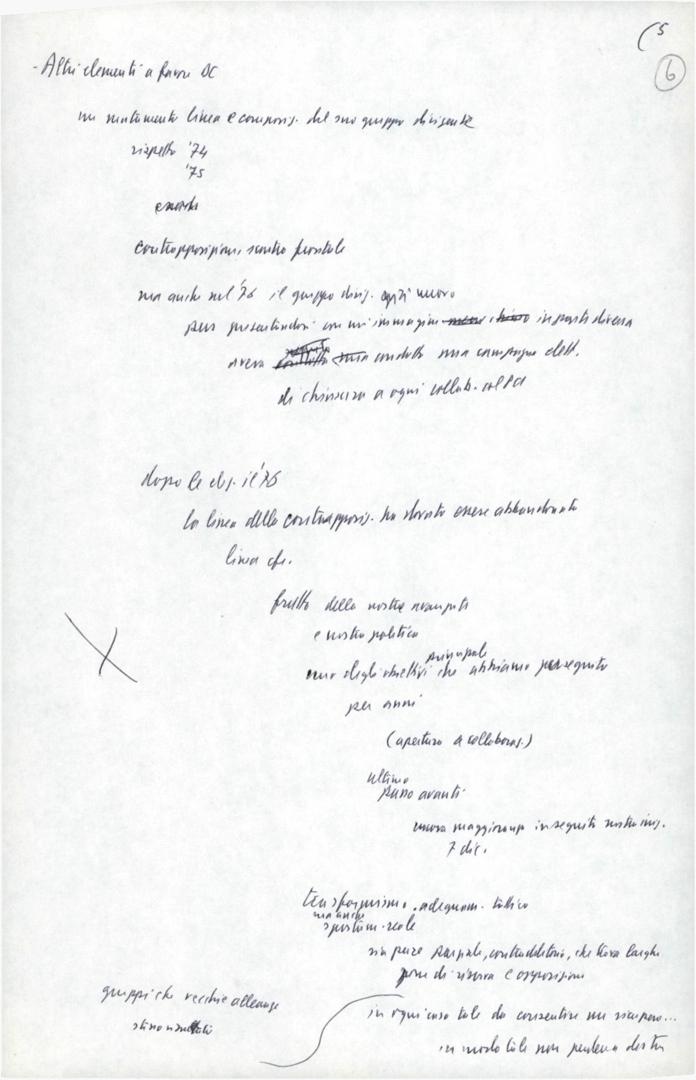 5
6
- Altri elementi a favore DC
un mutamento linea e composiz. del suo gruppo dirigente
rispetto '74
'75
contrapposizione, scontro frontale
ma anche nel '76 il gruppo dirig. già nuovo
pur presentandosi con un'immagine in parte diversa
aveva condotto una campagna elett.
di chiusura a ogni collab. col PCI
dopo le elez. il '76
la linea della contrapposiz. ha dovuto essere abbandonata
linea
frutto della nostra avanzata
e nostra politica
principale
uno degli obiettivi che abbiamo perseguito
per anni
(apertura a collaboraz.)
ultimo
passo avanti
nuova maggioranza in seguito nostra iniz.
7 dic.
trasformismo, adeguam. tattico
ma anche
spostam. reale
sia pure parziale, contraddittorio, che trova larghe
zone di riserva e opposizione
gruppi che vecchie alleanze
in ogni caso tale da consentire un recupero...
in modo tale non perdere a destra